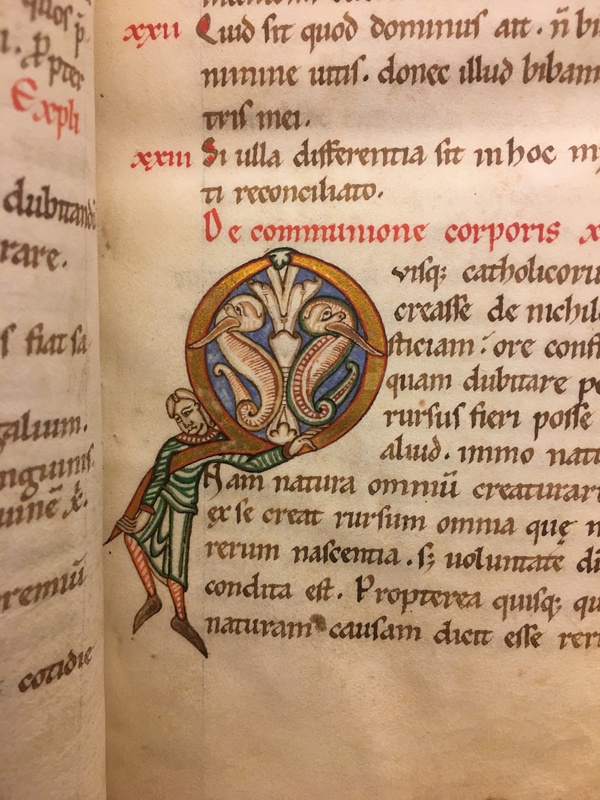 quos p̄
ꝓpter
Expli
dubitand
rare.
fiat sa
galium.
nguinis
uinē
remiū
cotidie
xxii Quid sit quod dominus ait. ñ bi
mine uitis. donec illud bibam
tris mei.
xxiii Si ulla differentia sit in hoc m
ti reconciliato.
De communione corporis x
Quisq; catholicoru
creasse de nichil
sticiam. ore conf
quam dubitare po
rursus fieri posse
aliud. immo natu
Nam natura omniū creaturar
ex se creat rursum omnia quę n
rerum nascentia. s; uoluntate di
condita est. Propterea quisq; qu
naturam causam dicit esse rer